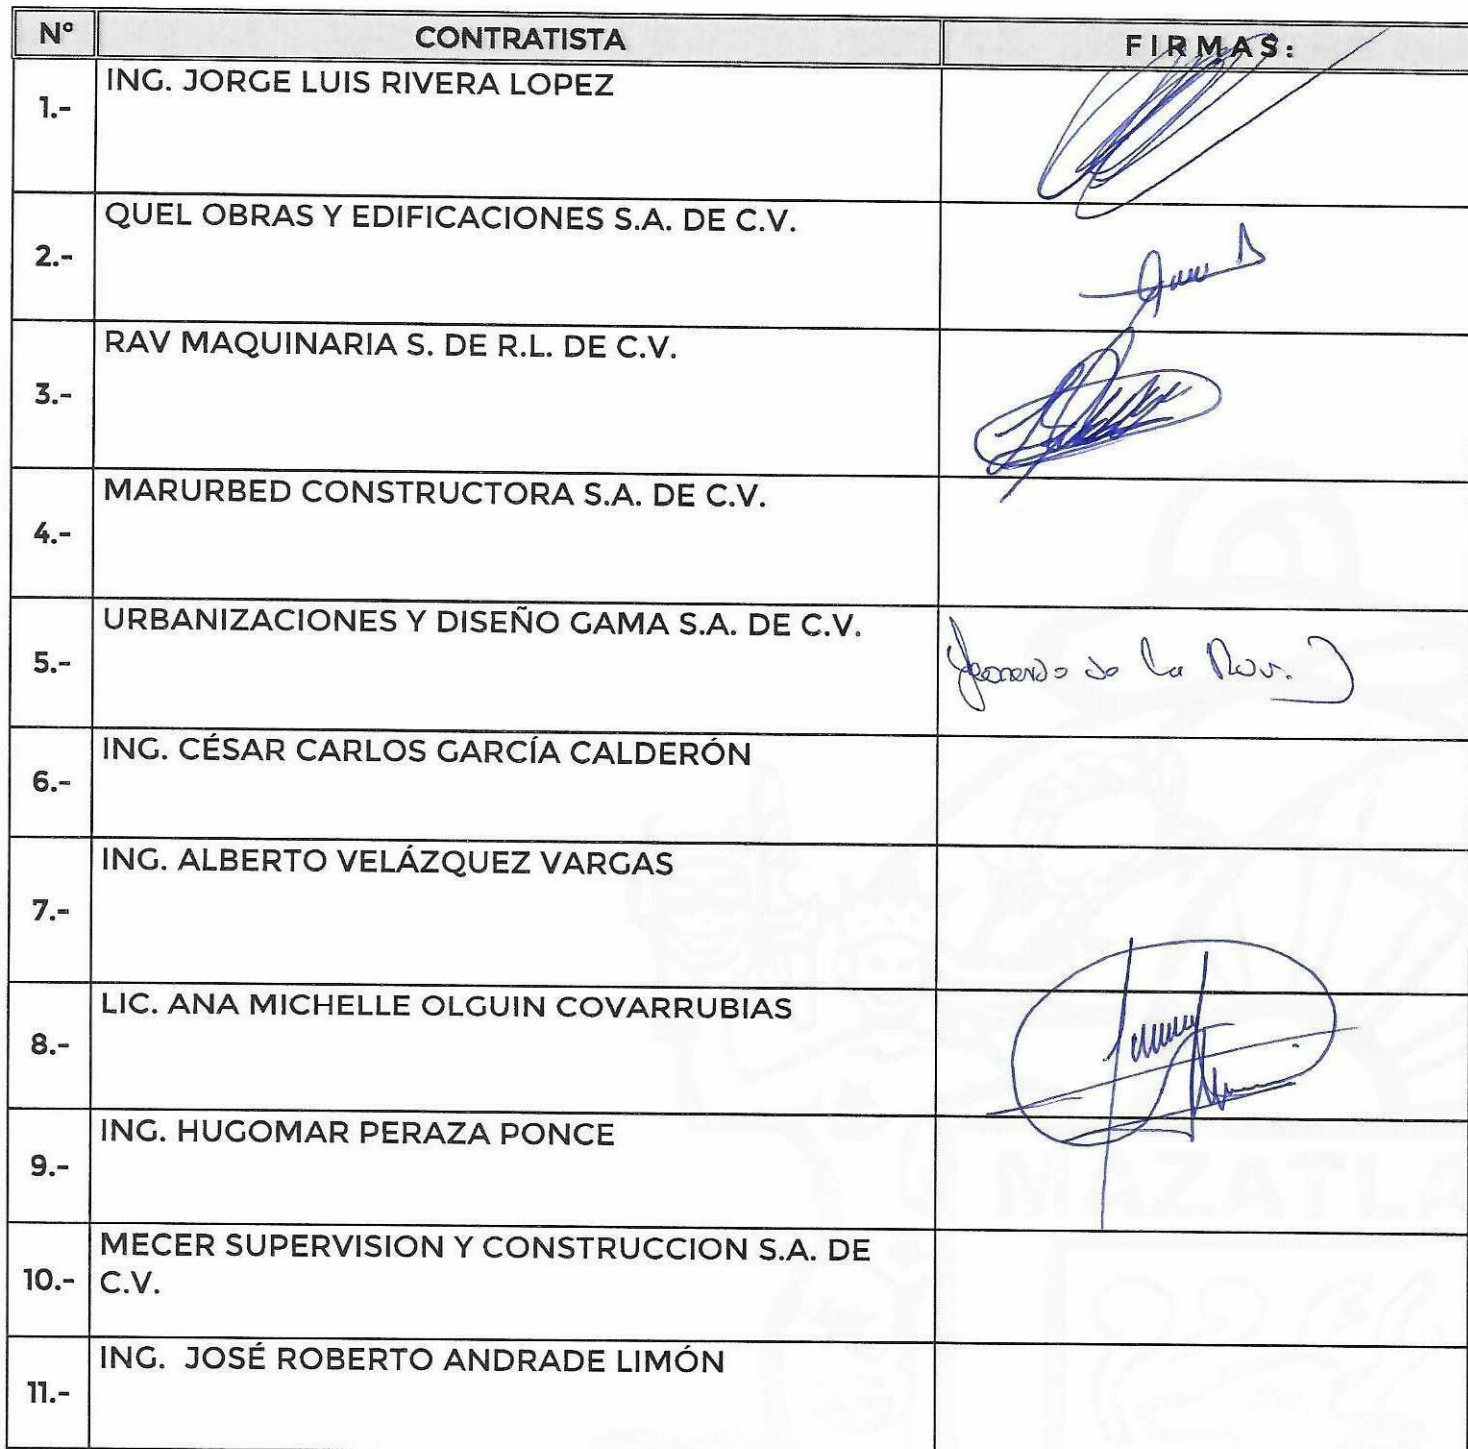 N° CONTRATISTA FIRMAS:
1.- ING. JORGE LUIS RIVERA LOPEZ
2.- QUEL OBRAS Y EDIFICACIONES S.A. DE C.V.
3.- RAV MAQUINARIA S. DE R.L. DE C.V.
4.- MARURBED CONSTRUCTORA S.A. DE C.V.
5.- URBANIZACIONES Y DISEÑO GAMA S.A. DE C.V.
de la
6.- ING. CÉSAR CARLOS GARCÍA CALDERÓN
7.- ING. ALBERTO VELÁZQUEZ VARGAS
8.- LIC. ANA MICHELLE OLGUIN COVARRUBIAS
9.- ING. HUGOMAR PERAZA PONCE
MAZATLA
10.- MECER SUPERVISION Y CONSTRUCCION S.A. DE
C.V.
11.- ING. JOSÉ ROBERTO ANDRADE LIMÓN